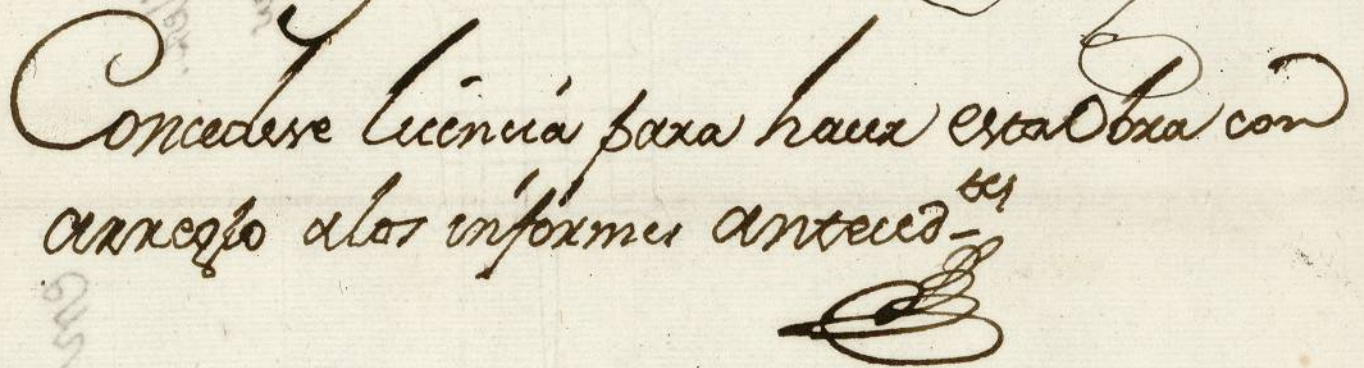 Concedese licencia para hacer esta Obra con
arreglo a los informes anteced.tes